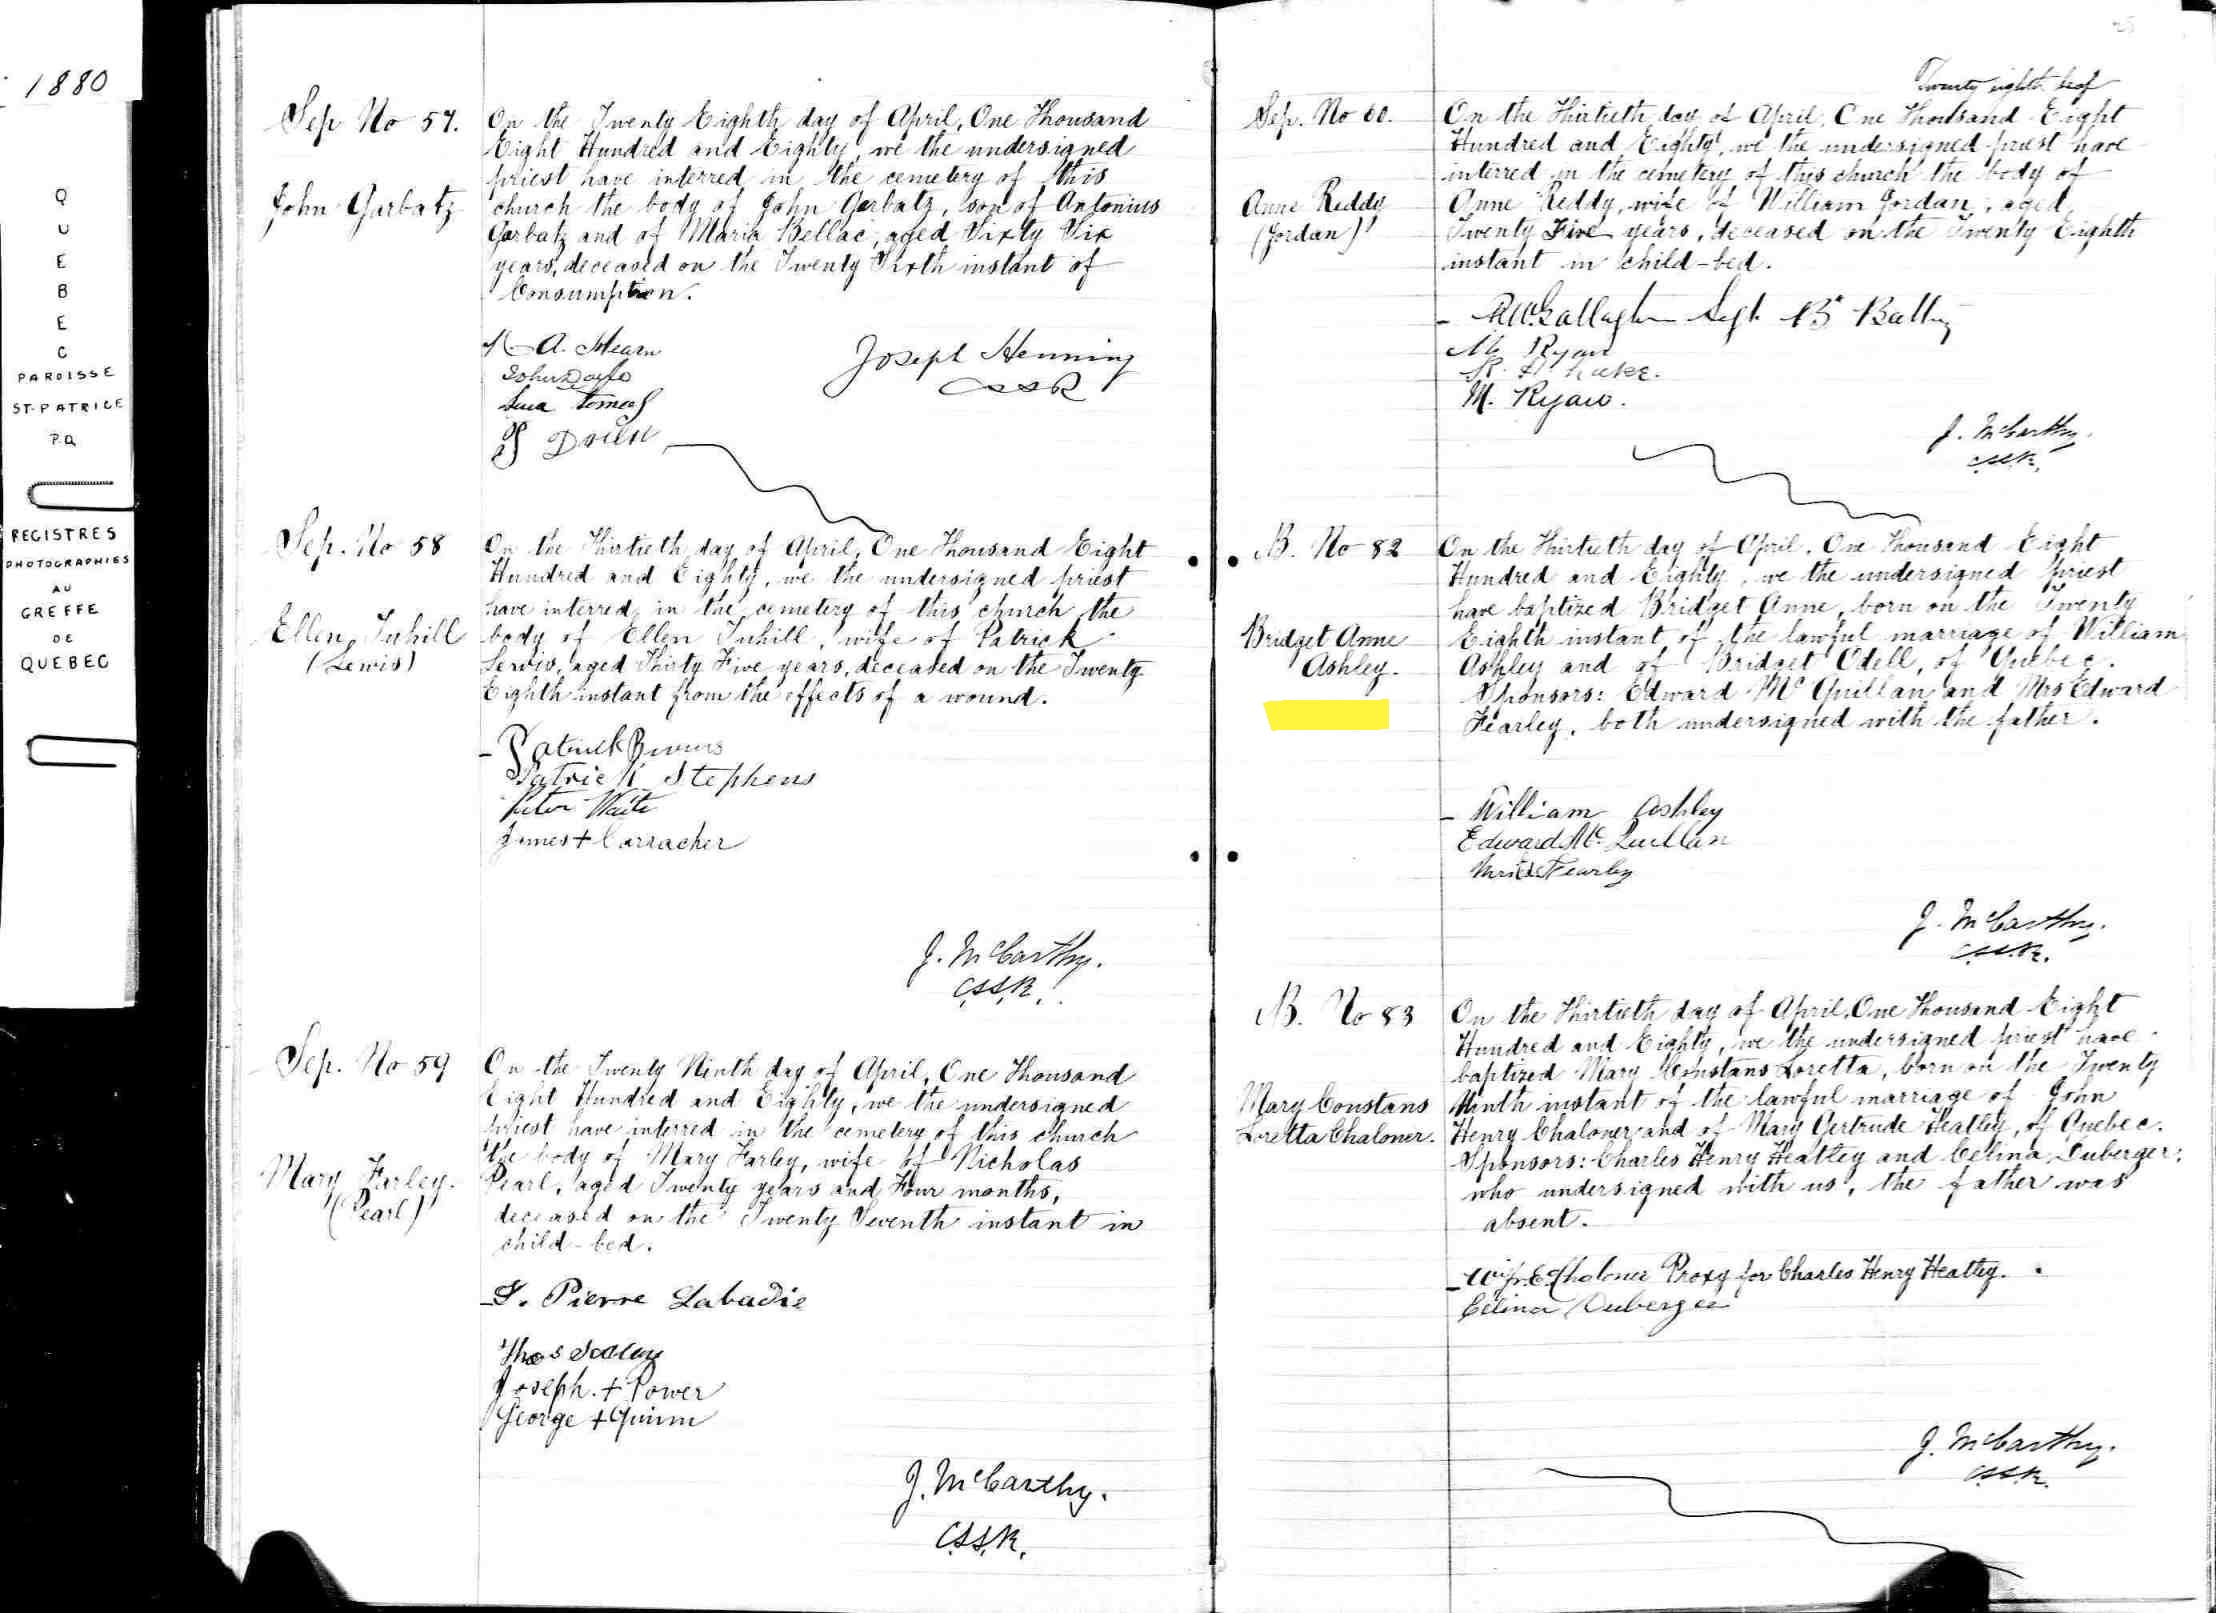 1880
QUEBEC
PAROISSE
ST-PATRICE
P.Q
REGISTRES
PHOTOGRAPHIES
AU
GREFFE
DE
QUEBEC
Sep No 57.
John Garbatz
On the Twenty Eighth day of April, One Thousand
Eight Hundred and Eighty, we the undersigned
priest have interred in the cemetery of this
church the body of John Garbatz, son of Antonius
Garbatz and of Maria Bellac, aged Sixty Six
years, deceased on the Twenty Sixth instant of
Consumption.
A. Hearn
John Doyle
Joseph Henning
CSSR
Sep. No 58
Ellen Tuhill
(Lewis)
On the Thirtieth day of April, One Thousand Eight
Hundred and Eighty, we the undersigned priest
have interred in the cemetery of this church the
body of Ellen Tuhill, wife of Patrick
Lewis, aged Thirty Five years, deceased on the Twenty
Eighth instant from the effects of a wound.
Patrick
Patrick Stephens
Peter Waite
James + Carracher
J. McCarthy.
C.S.S.R.
Sep. No 59
Mary Farley.
(Pearl)
On the Twenty Ninth day of April, One Thousand
Eight Hundred and Eighty, we the undersigned
priest have interred in the cemetery of this church
the body of Mary Farley, wife of Nicholas
Pearl, aged Twenty years and Four months,
deceased on the Twenty Seventh instant in
child-bed.
J. Pierre Labadie
Thos Scolay
Joseph. + Power
George + Quinn
J. McCarthy.
C.S.S.R.
Twenty eighth leaf
Sep. No 60.
Anne Reddy
(Jordan)
On the Thirtieth day of April, One Thousand Eight
Hundred and Eighty, we the undersigned priest have
interred in the cemetery of this church the body of
Anne Reddy, wife of William Jordan, aged
Twenty Five years, deceased on the Twenty Eighth
instant in child-bed.
R W Gallagher Sgt B. Batty
M. Ryan
M. Ryan.
J. McCarthy.
C.S.S.R.
B. No 82
Bridget Anne
Ashley.
On the Thirtieth day of April, One Thousand Eight
Hundred and Eighty, we the undersigned priest
have baptized Bridget Anne, born on the Twenty
Eighth instant of the lawful marriage of William
Ashley and of Bridget Odell, of Quebec.
Sponsors: Edward Mc Quillan and Mrs Edward
Fearley, both undersigned with the father.
William Ashley
Edward Mc Quillan
Mrs Ed. Fearley
J. McCarthy.
C.S.S.R.
B. No 83
Mary Constans
Loretta Chaloner.
On the Thirtieth day of April, One Thousand Eight
Hundred and Eighty, we the undersigned priest have
baptized Mary Constans Loretta, born on the Twenty
Ninth instant of the lawful marriage of John
Henry Chaloner and of Mary Gertrude Heatley, of Quebec.
Sponsors: Charles Henry Heatley and Celina Duberger,
who undersigned with us, the father was
absent.
Wm E Chaloner Proxy for Charles Henry Heatley.
Celina Duberger
J. McCarthy.
C.S.S.R.